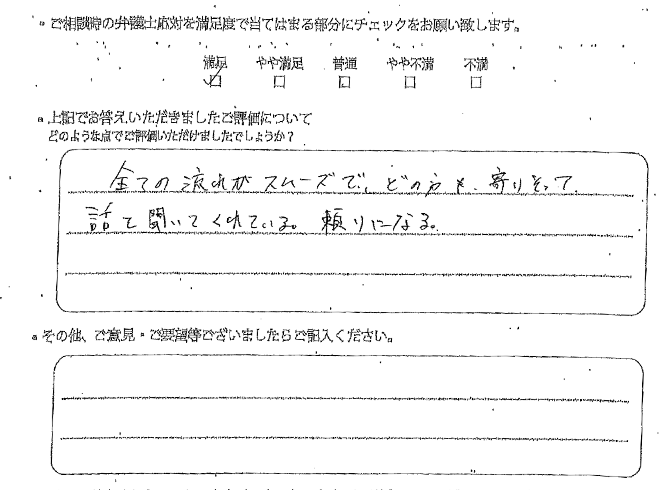 ご相談時の弁護士応対を満足度で当てはまる部分にチェックをお願い致します。
満足 やや満足 普通 やや不満 不満
上記でお答えいただきましたご評価について
どのような点でご評価いただけましたでしょうか？
全ての流れがスムーズで、どの方も、寄りそって
話を聞いてくれている。頼りになる。
その他、ご意見・ご要望等ございましたらご記入ください。